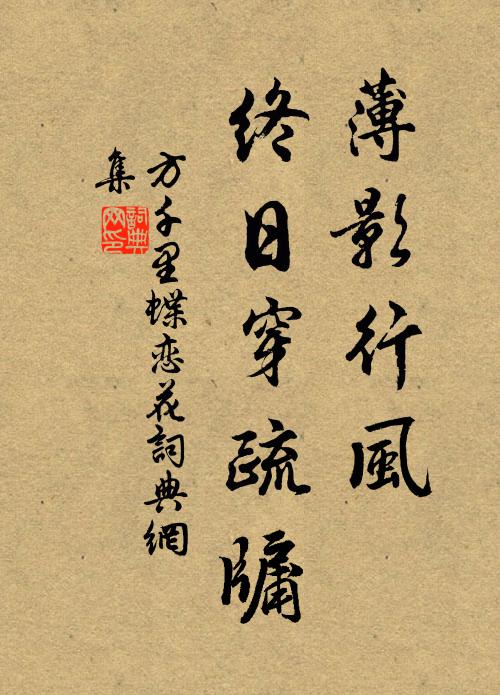 薄影行風
終日穿疏牖
方千里蝶恋花詞典網
集
詞典
网印